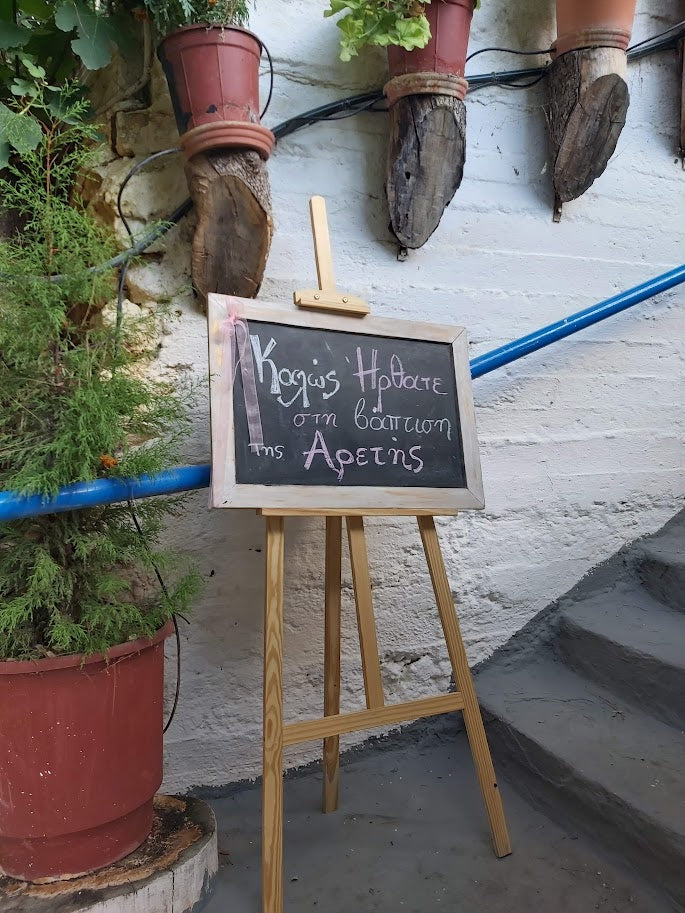 Καλώς Ήρθατε
στη βάπτιση
της Αρετής